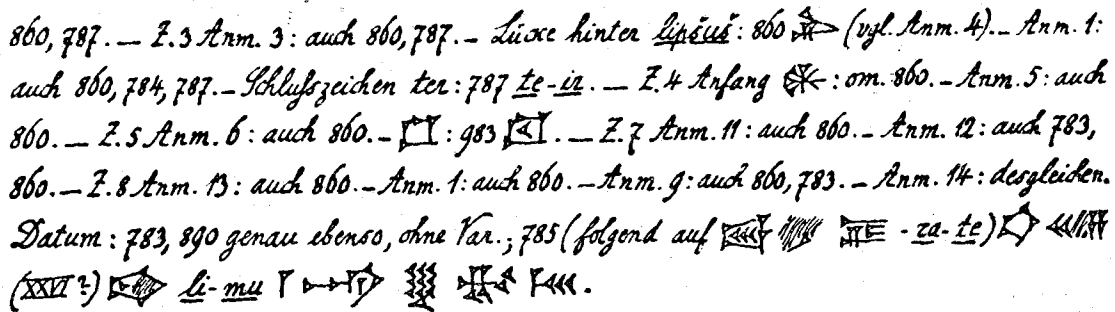 860, 787. — Z. 3 Anm. 3: auch 860, 787. – Lücke hinter lipšuš: 860 (vgl. Anm. 4). – Anm. 1:
auch 860, 784, 787. – Schlußzeichen ter: 787 te-ir. — Z. 4 Anfang : om. 860. – Anm. 5: auch
860. — Z. 5 Anm. 6: auch 860. – : 983 . — Z. 7 Anm. 11: auch 860. – Anm. 12: auch 783,
860. — Z. 8 Anm. 13: auch 860. – Anm. 1: auch 860. – Anm. 9: auch 860, 783. – Anm. 14: desgleichen.
Datum: 783, 890 genau ebenso, ohne Var.; 785 (folgend auf -za-te)
(XXVI?) li-mu